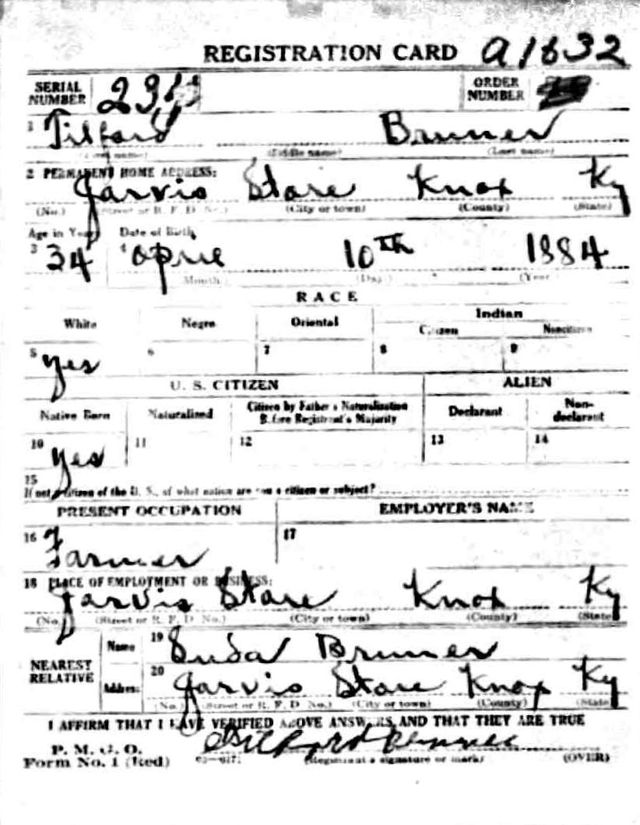 REGISTRATION CARD A1632
SERIAL NUMBER ORDER NUMBER
1 Tilford Bruner
(First name) (Middle name) (Last name)
2 PERMANENT HOME ADDRESS:
Jarvis Store Knox Ky
(No.) (Street or R. F. D. No.) (City or town) (County) (State)
Age in Years Date of Birth
3 34 4 April 10th 1884
(Month) (Day) (Year)
RACE
White Negro Oriental Indian
Citizen Noncitizen
5 Yes 6 7 8 9
U. S. CITIZEN ALIEN
Native Born Naturalized Citizen by Father's Naturalization Before Registrant's Majority Declarant Non-declarant
10 Yes 11 12 13 14
15
If not a citizen of the U. S., of what nation are you a citizen or subject?
PRESENT OCCUPATION EMPLOYER'S NAME
16 Farmer 17
18 PLACE OF EMPLOYMENT OR BUSINESS:
Jarvis Store Knox Ky
(No.) (Street or R. F. D. No.) (City or town) (County) (State)
NEAREST RELATIVE
Name 19 Bruner
Address 20 Jarvis Store Knox Ky
(No.) (Street or R. F. D. No.) (City or town) (County) (State)
I AFFIRM THAT I HAVE VERIFIED ABOVE ANSWERS AND THAT THEY ARE TRUE
P. M. G. O.
Form No. 1 (Red) (Registrant's signature or mark) (OVER)